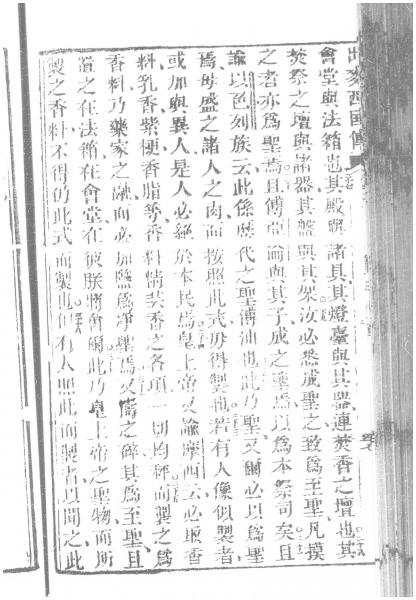 出麥西國傳
會堂與法箱也其殿與諸具其燈臺與其器連焚香之壇也其
焚祭之壇與諸器其盤與其架汝必悉成聖之致為至聖凡摸
之者亦為聖焉且傅亞論與其子成之聖焉以為本祭司矣且
諭以色列族云此係歷代之聖傅油也此乃聖又爾必以為聖
焉毋盛之諸人之肉而按照此式毋得製也若有人像似製者
或加與異人是人必絕於本民焉皇上帝又諭摩西云必取香
料乳香紫梗香脂等香料精裝香之各項一切均秤而製之為
香料乃藥家之融而必加鹽為淨聖焉又擣之碎其為至聖且
置之在法箱在會堂在彼朕將會爾此乃皇上帝之聖物而所
製之香料不得仍此式而製也但有人照此而製者以聞之此